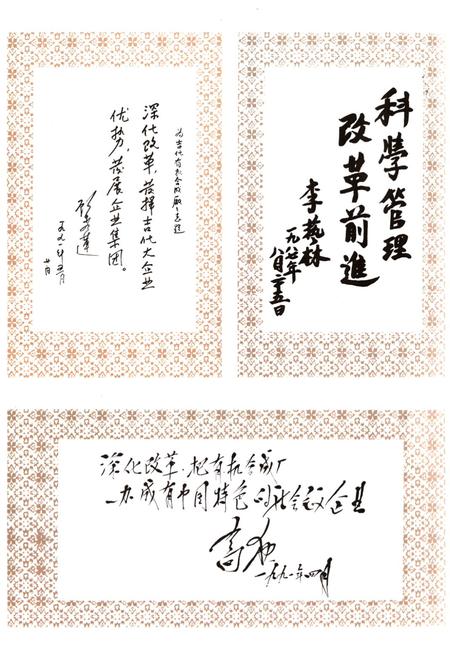 为吉化有机合成厂志题
深化改革，发挥吉化大企业
优势，发展企业集团。
一九九一年五月
廿日
科學管理
改革前進
李藝林
一九八七年
八月二十五日
深化改革.把有机合成厂
办成有中国特色的社会主义企业
高狄
一九九一年四月